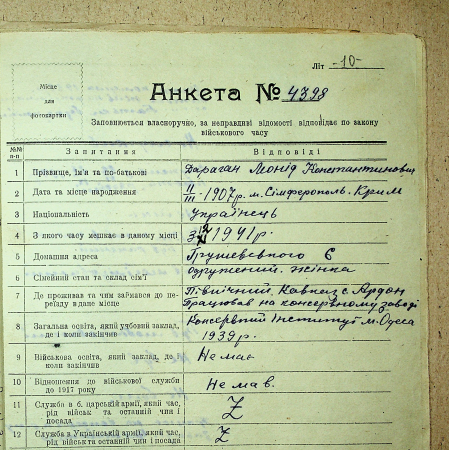 Літ -10-
Місце
для
фотокартки
Анкета № 4398
Заповнюється власноручно, за неправдиві відомості відповідає по закону
військового часу
№№ п-п Запитання Відповіді
1 Прізвище, ім'я та по-батькові Дараган Леонід Константинович
2 Дата та місце народження 11/III-1907 р. м. Сімферополь. Крим
3 Національність українець
4 З якого часу мешкає в даному місці 1941 р.
5 Домашня адреса Грушевського 6
6 Сімейний стан та склад сім'ї одружений. жінка
7 Де проживав та чим займався до пе- Північний Кавказ с. Ардон
реїзду в дане місце Працював на консервному заводі
8 Загальна освіта, який учбовий заклад, Консервний Інститут м. Одеса
де і коли закінчив 1939 р.
9 Військова освіта, який заклад, де і
коли закінчив Немає
10 Відношення до військової служби
до 1917 року Не мав.
11 Служба в б. царській армії, який час,
рід військ та останній чин і
посада Z
12 Служба в Українській армії, який час,
рід військ та останній чин і посада Z